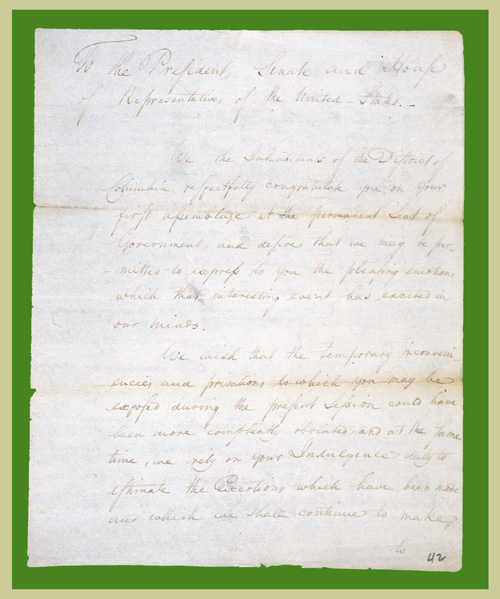 To the President, Senate and House
of Representatives of the United States.—
We the Inhabitants of the District of
Columbia respectfully congratulate you on your
first assemblage at the permanent Seat of
Government, and desires that we may be per-
-mitted to express to you the pleasing emotions
which that interesting event has excited in
our minds.
We wish that the temporary inconveni
encies and privations to which you may be
exposed during the present Session could have
been more compleatly obviated and at the same
time, we rely on your Indulgence duly to
estimate the Exertions which have been made
and which we shall continue to make
to
42